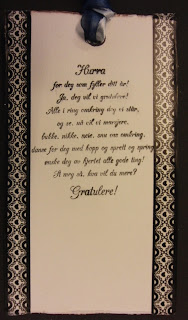 Hurra
for deg som fyller ditt år!
Ja, deg vil vi gratulere!
Alle i ring omkring deg vi står,
og se, nå vil vi marsjere,
bukke, nikke, neie, snu oss omkring,
danse for deg med hopp og sprett og spring
ønske deg av hjertet alle gode ting!
Si meg så, hva vil du mere?
Gratulere!